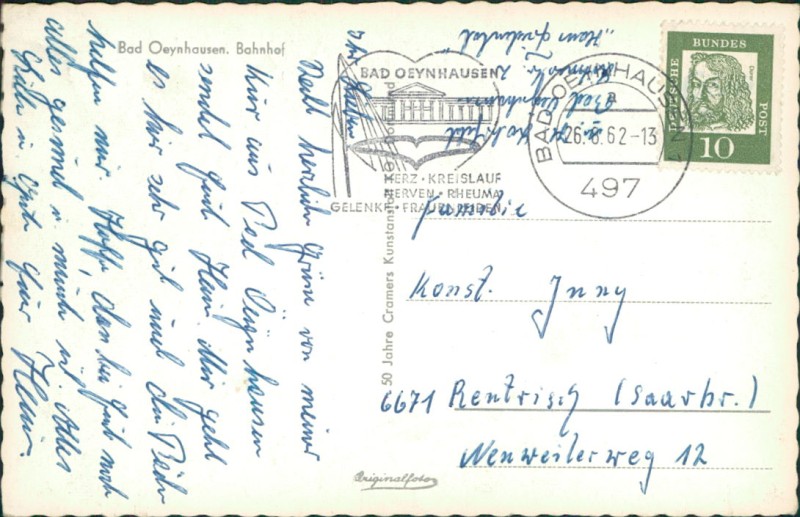 Bad Oeynhausen. Bahnhof
Recht herzliche Grüße von meiner
Kur aus Bad Oeynhausen
sendet Euch Heini. Mir geht
es hier sehr gut und die Bäder
helfen mir. Hoffe, das bei Euch noch
alles gesund u. munter ist. Alles
Gute Euer
Heini.
"Haus
Bad Oeynhausen
BAD OEYNHAUSEN
HERZ · KREISLAUF
NERVEN · RHEUMA
GELENKE · FRAUENLEIDEN
BAD OEYNHAUSEN 2
a
26.6.62-13
497
DEUTSCHE
BUNDES
POST
Dürer
10
50 Jahre Cramers Kunstanstalt
Familie
Konst. Jung
6671 Rentrisch (Saarbr.)
Neuweilerweg 12
Originalfoto